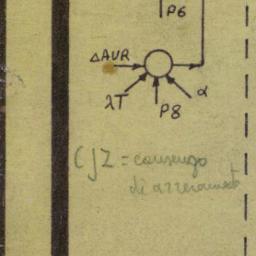 P6
ΔAVR
λT
P8
α
CJZ = consenso
di azzeramento